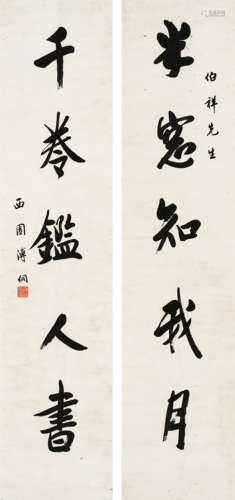 伯祥先生
半窗知我月
千卷鑑人書
西園溥侗